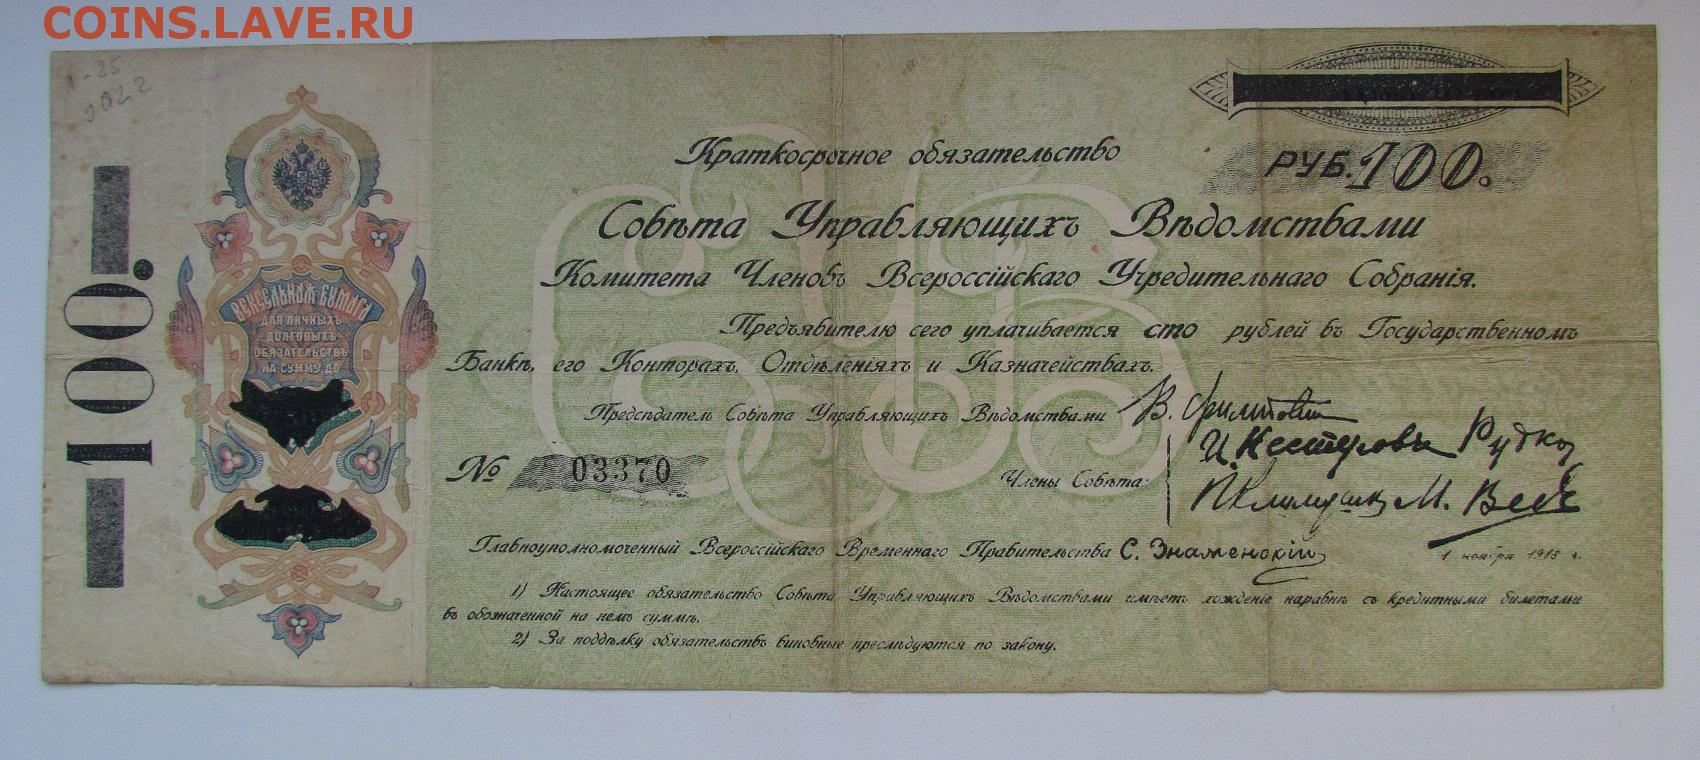 COINS.LAVE.RU
1-25
2022
100.
ВЕКСЕЛЬНАЯ БУМАГА
ДЛЯ ЛИЧНЫХЪ
ДОЛГОВЫХЪ
ОБЯЗАТЕЛЬСТВЪ
НА СУММУ ДО
РУБ. 100.
Краткосрочное обязательство
Совѣта Управляющихъ Вѣдомствами
Комитета Членовъ Всероссійскаго Учредительнаго Собранія.
Предъявителю сего уплачивается сто рублей въ Государственномъ
Банкѣ, его Конторахъ, Отдѣленіяхъ и Казначействахъ.
Предсѣдатель Совѣта Управляющихъ Вѣдомствами В. Филипповскій
И. Нестеровъ Рудко
№ 03370
Члены Совѣта:
П. Климушкинъ М. Веденяпинъ
Главноуполномоченный Всероссійскаго Временнаго Правительства С. Знаменскій
1 ноября 1918 г.
1) Настоящее обязательство Совѣта Управляющихъ Вѣдомствами имѣетъ хожденіе наравнѣ съ кредитными билетами
въ обозначенной на немъ суммѣ.
2) За поддѣлку обязательствъ виновные преслѣдуются по закону.